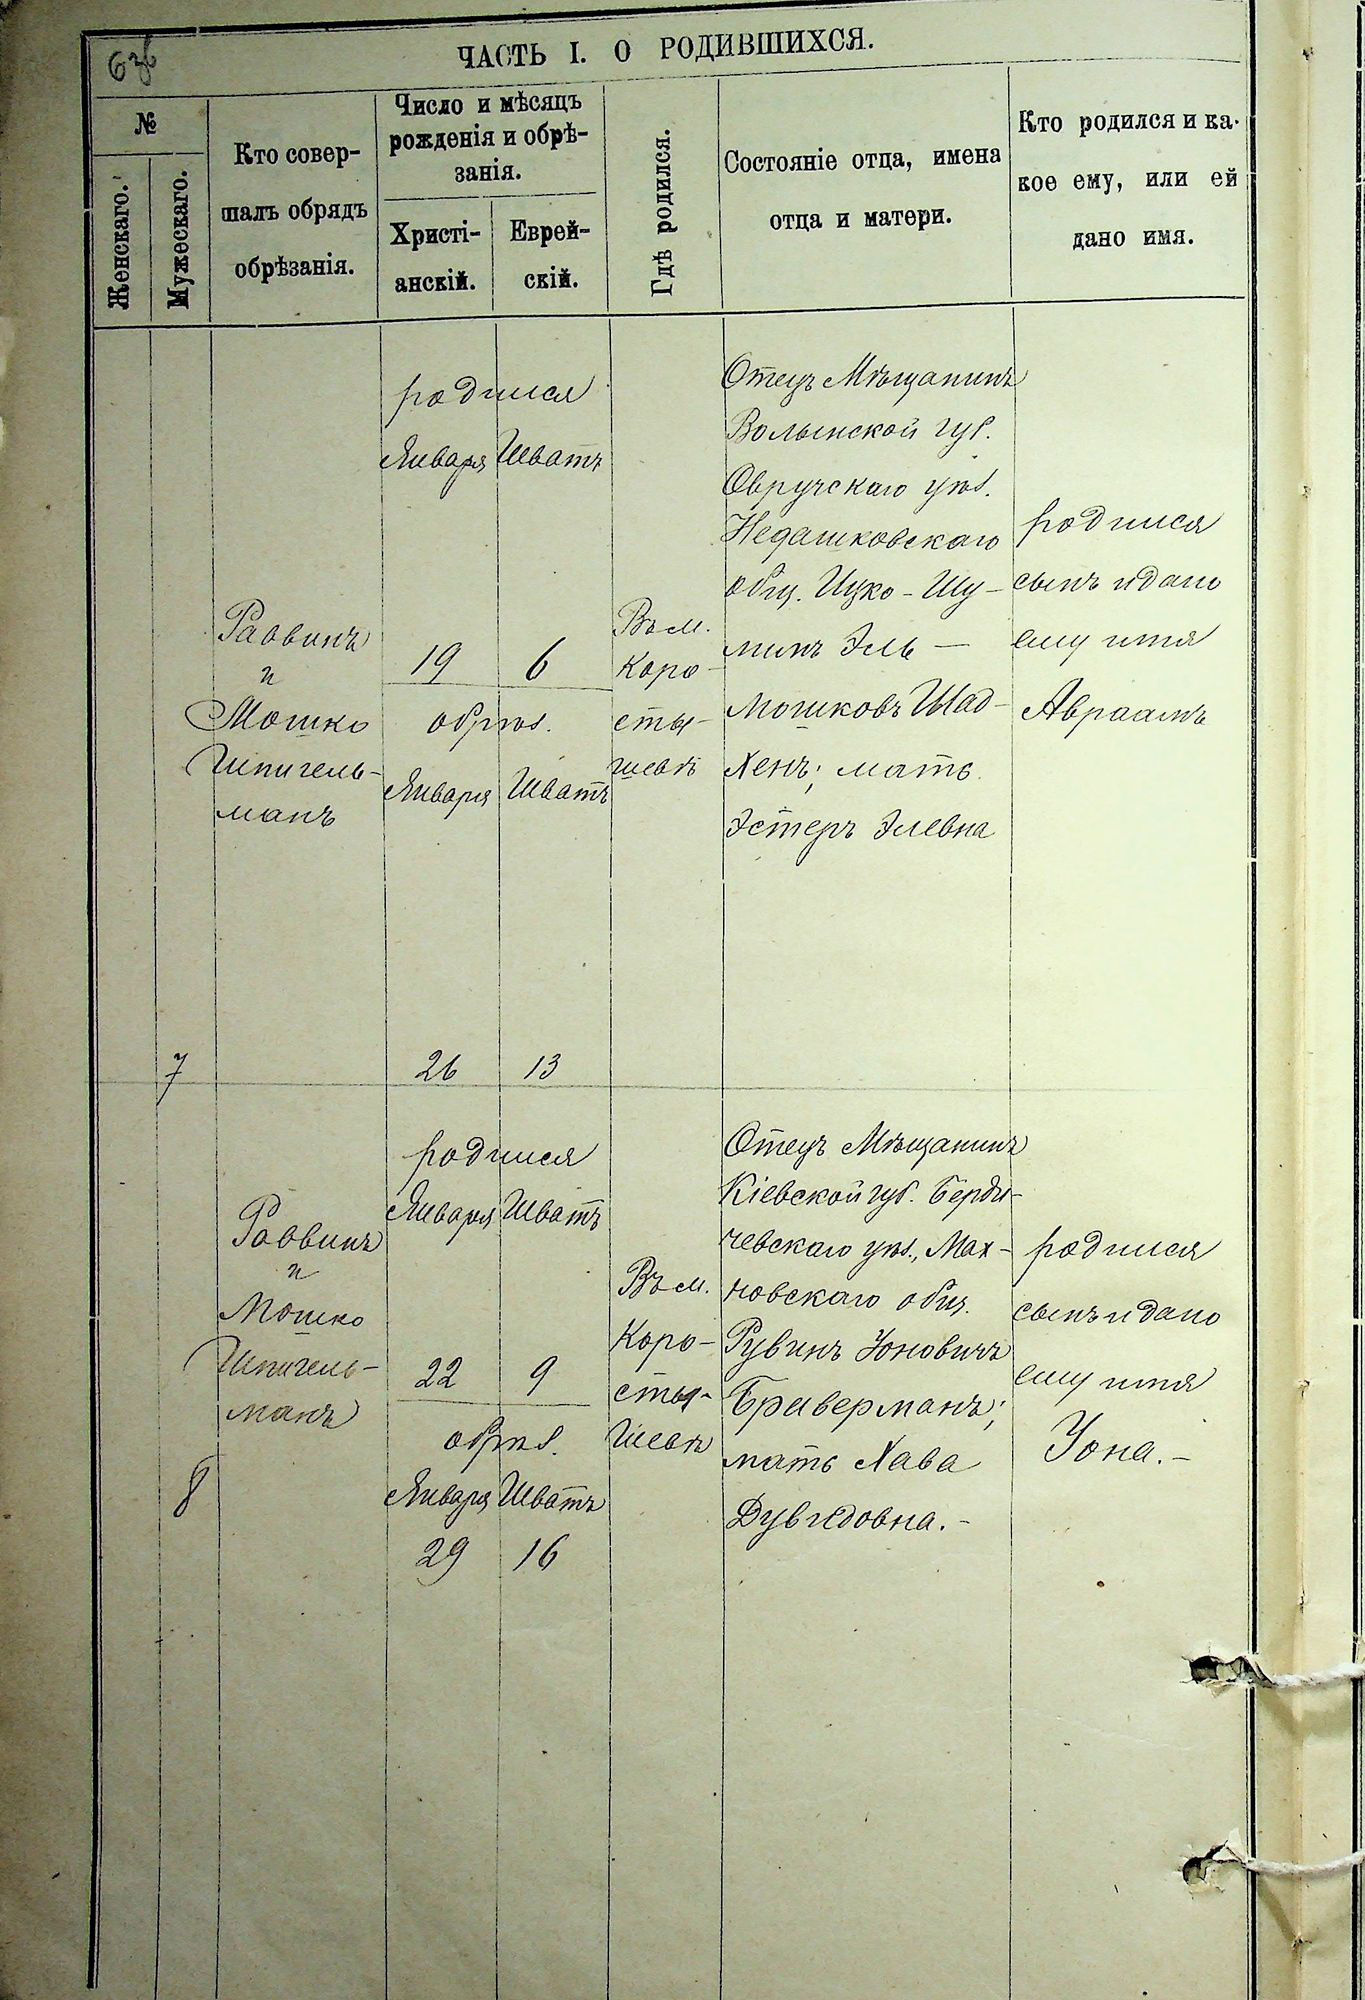 636
ЧАСТЬ I. О РОДИВШИХСЯ.
№
Женскаго.
Мужескаго.
Кто совер-
шалъ обрядъ
обрѣзанія.
Число и мѣсяцъ
рожденія и обрѣ-
занія.
Христі-
анскій.
Еврей-
скій.
Гдѣ родился.
Состояніе отца, имена
отца и матери.
Кто родился и ка-
кое ему, или ей
дано имя.
7
Раввинъ
и
Мошко
Шпигель-
манъ
родился
Января Шватъ
19 6
обрѣз.
Января Шватъ
26 13
Въ м.
Коро-
сты-
шевѣ
Отецъ Мѣщанинъ
Волынской губ.
Овручскаго уѣз.
Недашковскаго
общ. Ицко-Шу-
лимъ Эль —
Мошковъ Шад-
хенъ; мать
Эстеръ Элевна
родился
сынъ и дано
ему имя
Авраамъ
8
Раввинъ
и
Мошко
Шпигель-
манъ
родился
Января Шватъ
22 9
обрѣз.
Января Шватъ
29 16
Въ м.
Коро-
сты-
шевѣ
Отецъ Мѣщанинъ
Кіевской губ. Берди-
чевскаго уѣз., Мах-
новскаго общ.
Рувинъ Іоновичъ
Браверманъ;
мать Хава
Дувидовна.-
родился
сынъ и дано
ему имя
Іона.-